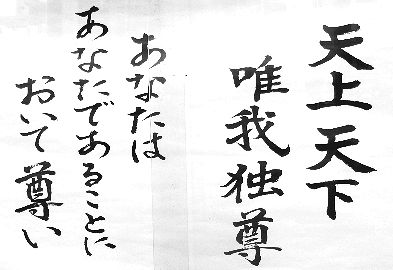 天上天下
唯我独尊
あなたは
あなたであることに
おいて尊い